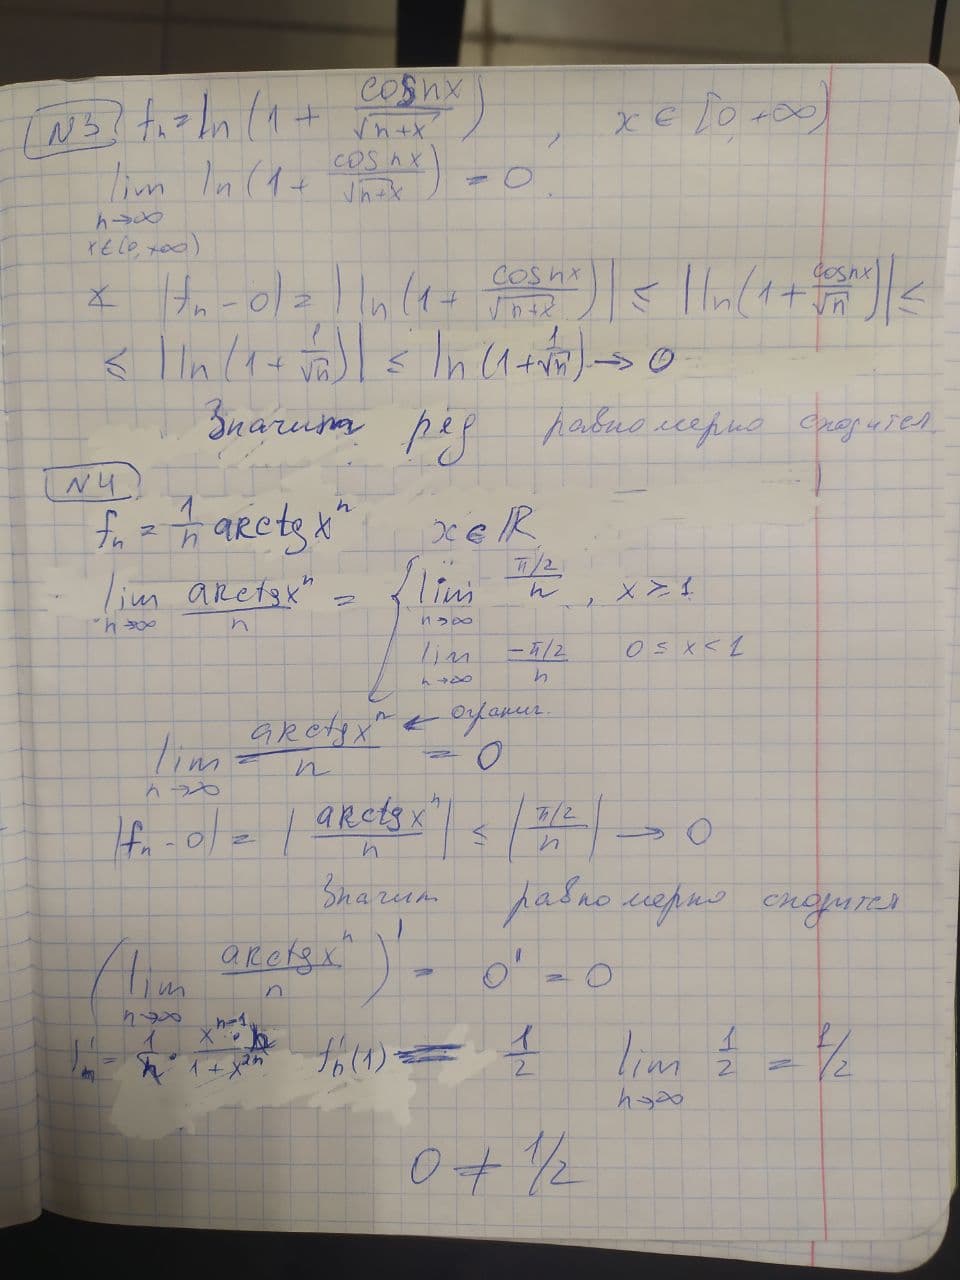 N3 fn = ln(1 + cosnx/√(n+x)), x ∈ [0, +∞)
lim ln(1 + cosnx/√(n+x)) = 0.
n→∞
x∈(0,+∞)
x |fn - 0| = |ln(1 + cosnx/√(n+x))| ≤ |ln(1 + cosnx/√n)| ≤
≤ |ln(1 + 1/√n)| ≤ ln(1 + 1/√n) → 0
Значит ряд равномерно сходится
N4
fn = 1/n arctgxⁿ x ∈ ℝ
lim n→∞ arctgxⁿ/n = { lim n→∞ π/2/n, x ≥ 1
lim n→∞ -π/2/n 0 ≤ x < 1
lim n→∞ arctgxⁿ/n = 0 ← огранич.
|fn - 0| = |arctgxⁿ/n| ≤ |π/2/n| → 0
Значит равномерно сходится
(lim n→∞ arctgxⁿ/n)' = 0' = 0
f'n = 1/n · xⁿ⁻¹·n/1+x²ⁿ f'n(1) = 1/2 lim n→∞ 1/2 = 1/2
0 ≠ 1/2